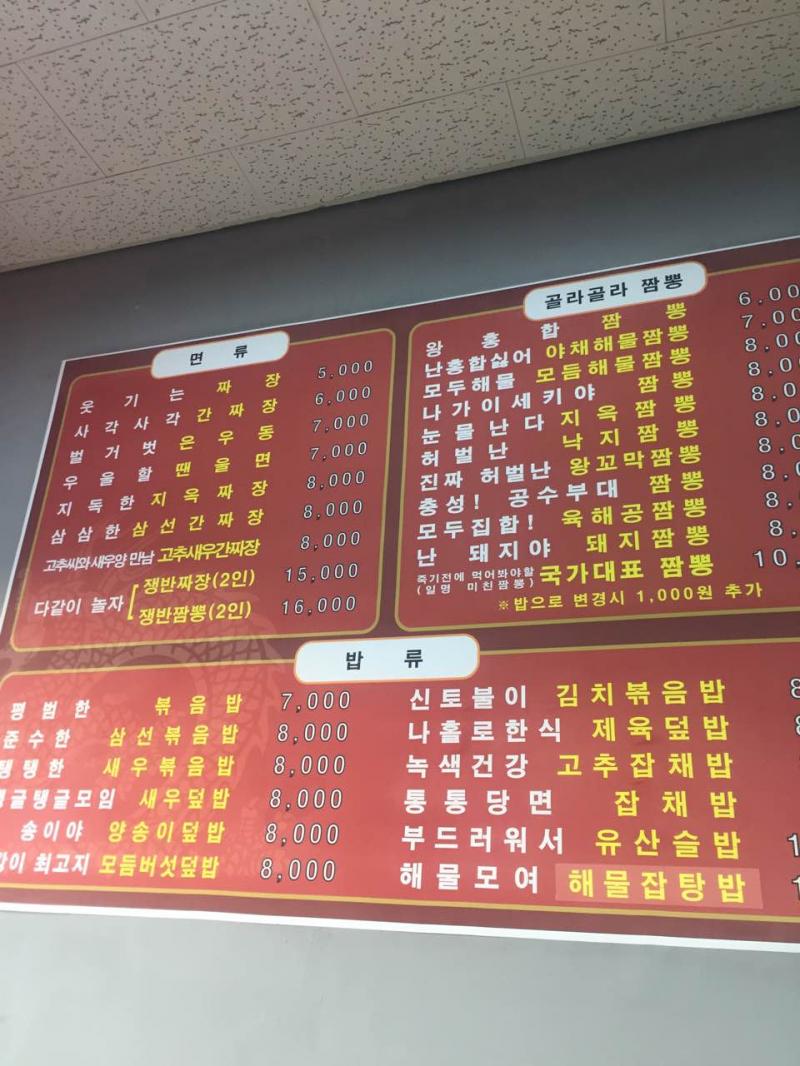 면 류
웃기는 짜장 5,000
사각사각 간짜장 6,000
벌거벗은 우동 7,000
우울할 땐 울면 7,000
지독한 지옥짜장 8,000
삼삼한 삼선간짜장 8,000
고추씨와 새우양 만남 고추새우간짜장 8,000
다같이 놀자 쟁반짜장(2인) 15,000
쟁반짬뽕(2인) 16,000
골라골라 짬뽕
왕홍합 짬뽕
난홍합싫어 야채해물짬뽕
모두해물 모듬해물짬뽕
나가이세키야 짬뽕
눈물난다 지옥짬뽕
허벌난 낙지짬뽕
진짜 허벌난 왕꼬막짬뽕
충성! 공수부대 짬뽕
모두집합! 육해공짬뽕
난 돼지야 돼지짬뽕
죽기전에 먹어봐야할
(일명 미친짬뽕) 국가대표 짬뽕
※밥으로 변경시 1,000원 추가
밥 류
평범한 볶음밥 7,000
준수한 삼선볶음밥 8,000
탱탱한 새우볶음밥 8,000
새우덮밥 8,000
송이야 양송이덮밥 8,000
최고지 모듬버섯덮밥 8,000
신토불이 김치볶음밥
나홀로한식 제육덮밥
녹색건강 고추잡채밥
통통당면 잡채밥
부드러워서 유산슬밥
해물모여 해물잡탕밥